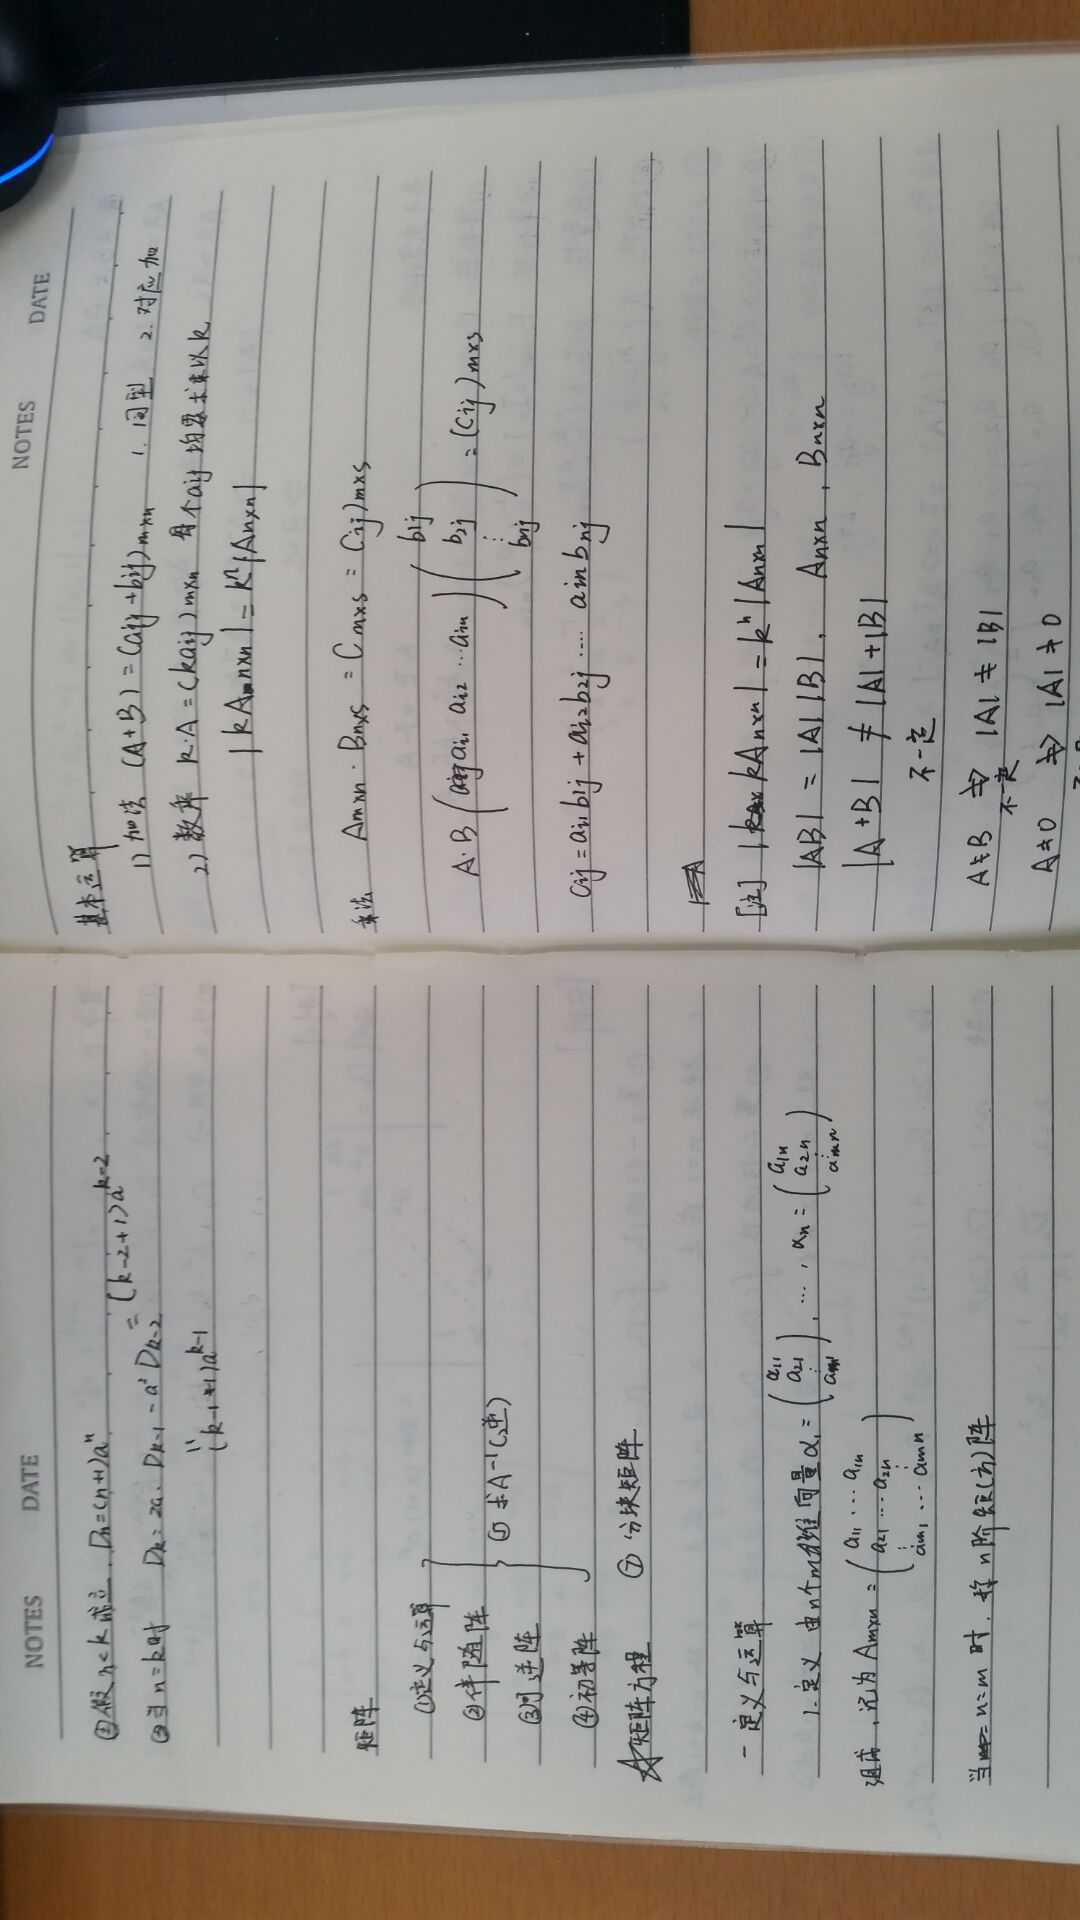 NOTES DATE
②假 n<k 成立. Dn=(n+1)aⁿ
③当 n=k时 Dk=2a·Dk-1-a²Dk-2
=(k-2+1)a^{k-2}
(k-1+1)a^{k-1}
矩阵
①定义与运算
②伴随阵
③可逆阵
④初等阵
⑤求A⁻¹(逆)
☆矩阵方程 ⑦分块矩阵
一 定义与运算
1.定义 由n个m维向量α₁=(a11 a21 ⋮ am1), ⋯, αn=(a1n a2n ⋮ amn)
组成,记为 Am×n=(a11 ⋯ a1n
a21 ⋯ a2n
⋮ ⋮
am1 ⋯ amn)
当 n=m 时. 称n阶矩(方)阵
NOTES DATE
基本运算
1) 加法 (A+B)=(aij+bij)m×n 1.同型 2.对应加
2) 数乘 k·A=(kaij)m×n 每个aij均要乘以k
|kAn×n|=kⁿ|An×n|
乘法 Am×n·Bn×s=Cm×s=(Cij)m×s
A·B(ai1 ai2 ⋯ ain)(b1j b2j ⋮ bnj)=(Cij)m×s
Cij=ai1b1j+ai2b2j ⋯ ainbnj
[注] |kAn×n|=kⁿ|An×n|
|AB|=|A||B|, An×n, Bn×n
|A+B| ≠ |A|+|B|
不一定
A≠B ⇏ |A|≠|B|
不一定
A≠0 ⇏ |A|≠0